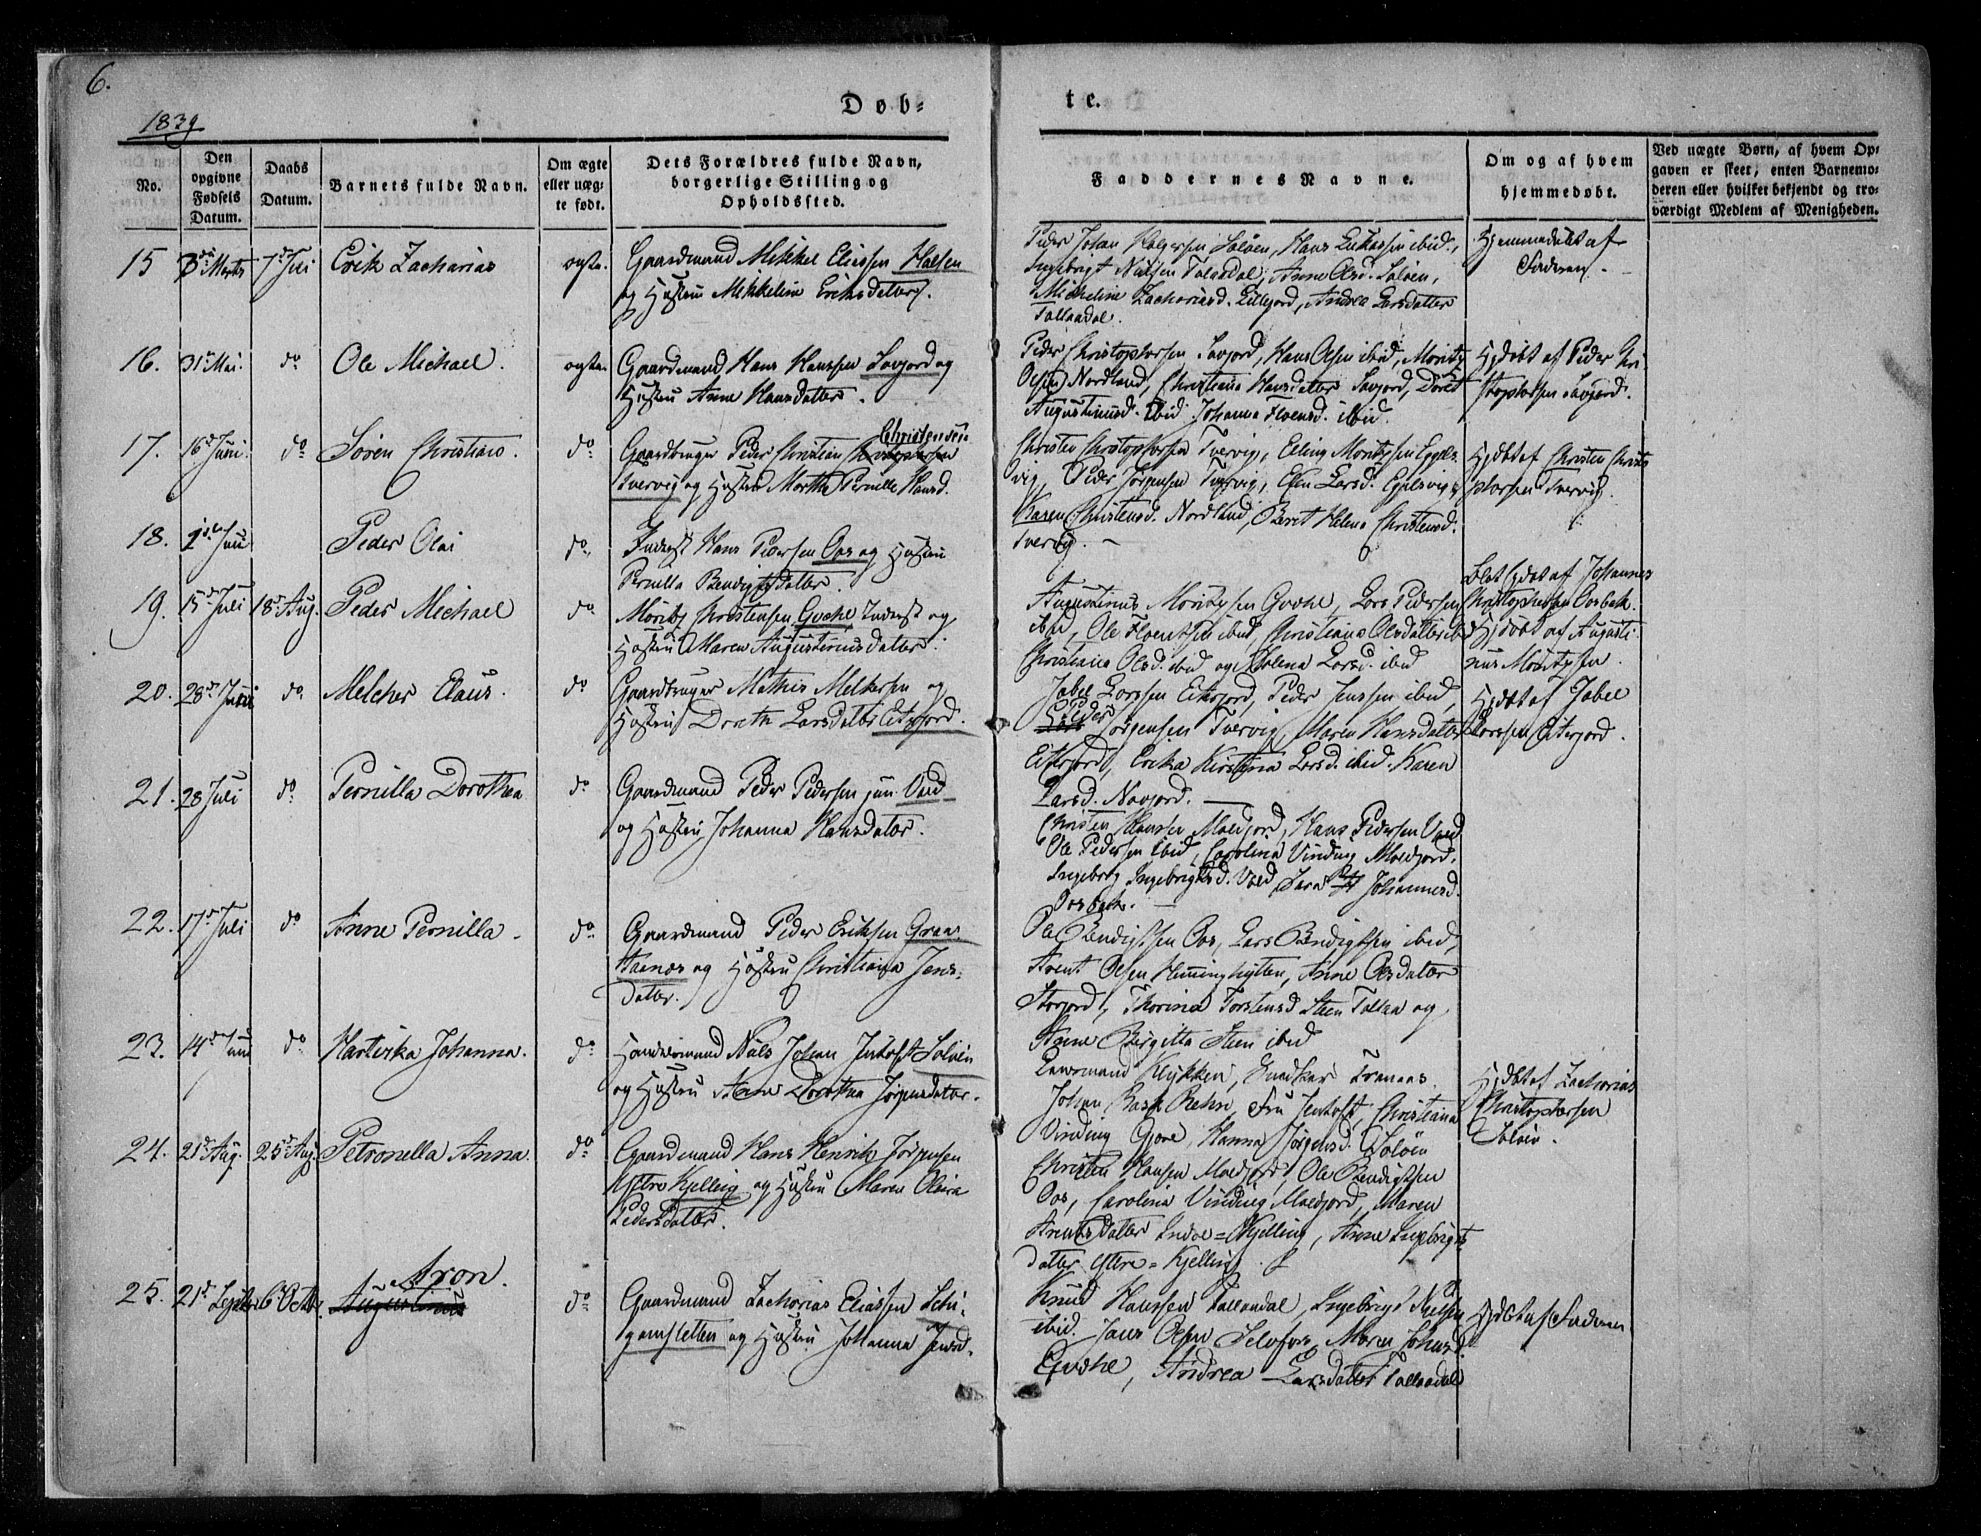 6.
Døb-
te.
1839
No.
Den
opgivne
Fødsels
Datum.
Daabs
Datum.
Barnets fulde Navn.
Om ægte
eller uæg-
te født.
Dets Forældres fulde Navn,
borgerlige Stilling og
Opholdssted.
Faddernes Navne.
Om og af hvem
hjemmedøbt.
Ved uægte Børn, af hvem Op-
gaven er skeet; enten Barnemo-
deren eller hvilket bekjendt og tro-
værdigt Medlem af Menigheden.
15 7de Juli Erik Zacharias ægte.
Gaardmand Mikkel Eliassen
og Hustru Mikkeline Eriksdatter.
Peder Johan Soløen, Hans ibid.,
Ingebrigt Nielsen, Anne Olsd. Soløen,
Zachariasd. Lillejord, Andrea Larsdatter
Hjemmedøbt af
Faderen.
16. 31te Mai. do Ole Michael. ægte.
Gaardmand Hans Hanssen Savjord og
Hustru Anne Hansdatter.
Peder Christophersen Savjord, Hans Olsen ibid, Moritz
Olsen Nordland, Christiana Hansdatter Savjord, Doret
Augustinusd. ibid. Johanna ibid.
Hjdøbt af Peder Chri-
stophersen Savjord.
17. 16de Juni. do Søren Christians. do
Christensen
Gaardbruger Peder Christian
Tvervig og Hustru Martha Pernille Hansd.
Christen Christophersen Tvervig, Elling Moritzsen
vig, Peder Jørgensen Tvervig, Elen Larsd.
Karen Christensd. Nordland, Beret Helena Christensd.
Tvervig.
Hjdøbt af Christen Christo-
phersen Tvervig.
18. Juni Peder Olai do
Inderst Hans Pedersen Oos og Hustru
Pernilla Bendigtsdatter.
Blev hjdøbt af Johannes
Christophersen Oosbak.
19. 15de Juli 18de Aug. Peder Michael do
Moritz Christensen Inderst og
Hustru Maren Augustinusdatter.
Augustinus Moritzsen, Lars Pedersen
ibid, Ole ibid, Christiana Olsdatter ibid
Christiana Olsd. ibid og Larsd. ibid
Hjdøbt af Augusti-
nus Moritzsen.
20. 28de Juni do. Melcher Claus. do
Gaardbruger Mathis Melkersen og
Hustru Dorthe Larsdatter Eiterjord.
Jabel Larssen Eiterjord, Peder Jenssen ibid,
Peder
Jørgensen Tvervig, Maren Hansdatter
Eiterjord, Erika Kirstina Larsd. ibid. Karen
Larsd. Navjord.
Hjdøbt af Jabel
Larssen Eiterjord.
21. 28 Juli do. Pernilla Dorothea do
Gaardmand Peder Pedersen jun
og Hustru Johanna Hansdatter.
Christen Hanssen Moldjord, Hans Pedersen
Ole Pedersen ibid, Carolina Vinding Moldjord.
Ingeborg Ingebrigtsd. Sara Johannesd.
Oosbak.
22. 17de Juli do Anne Pernilla. do.
Gaardmand Peder Eriksen Graa-
og Hustru Christiana Jens-
datter.
Ole Bendigtsen Oos, Lars Bendigtsen ibid,
Arent Olsen, Anne Olsdatter
Storjord, Thorina Torstensd. og
Anne Birgitta Steen ibid
23. 14de Juni do. Hartvika Johanna. do
Handelsmand Niels Johan Jentoft Soløen
og Hustru Anne Dorothea Jørgensdatter.
Lensmand Klykken, Snedker
Johan Fru Jentoft, Christiana
Vinding, Hanna Jørgensd. Soløen
Hjdøbt af Zacharias
Christophersen
Soløen.
24. 21de Aug. 25de Aug. Petronella Anna. do.
Gaardmand Hans Henrik Jørgensen
Yttre Kjelling og Hustru Maren Olina
Pedersdatter.
Christen Hansen Moldjord, Ole Bendigtsen
Oos, Carolina Vinding Moldjord, Maren
Arentsdatter Indre-Kjelling, Anne Ingebrigts
datter Yttre-Kjelling.
25. 21de Septbr 6 Octbr.
Aron.
Augustinus do
Gaardmand Zacharias Eliassen
og Hustru Johanna Jensd.
Knud Hanssen, Ingebrigt Nielsen
ibid. Jens Olsen, Maren Johansd.
Andrea Larsdatter
Hjdøbt af Faderen.